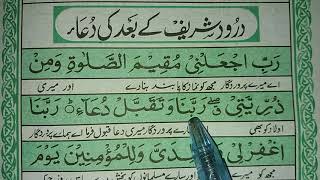 درود شریف کے بعد کی دُعاء
رَبِّ اجْعَلْنِیْ مُقِیْمَ الصَّلٰوةِ وَمِنْ
اے میرے پروردگار مجھ کو نماز کا پابند بنا دے اور میری
ذُرِّیَّتِیْ رَبَّنَا وَتَقَبَّلْ دُعَآءِ رَبَّنَا
اولاد کو بھی اے پروردگار میری دعا قبول فرما اے ہمارے پروردگار
اغْفِرْ لِیْ وَلِلْمُؤْمِنِیْنَ یَوْمَ
مجھ کو